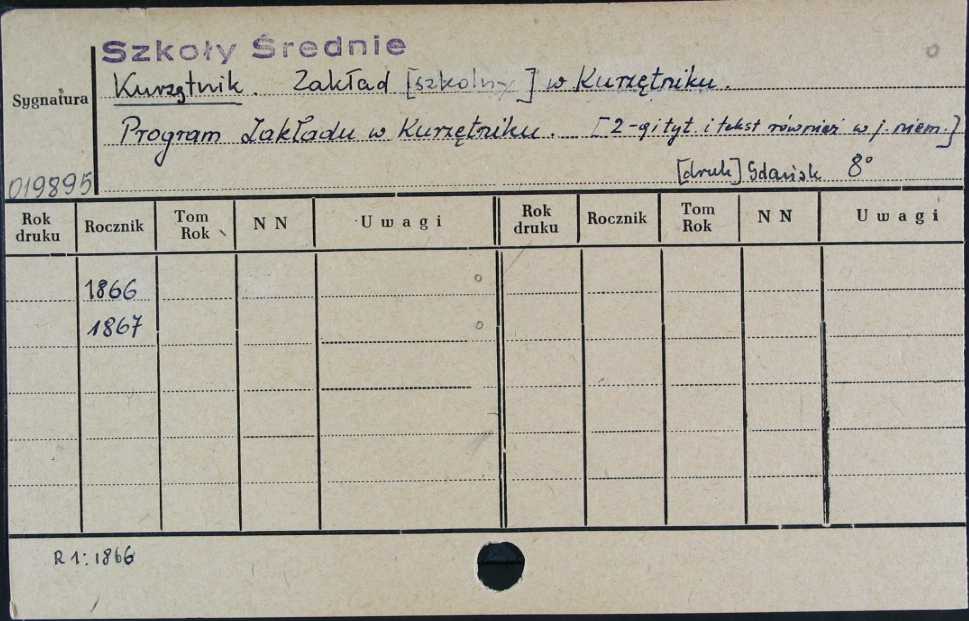 Szkoły Średnie
Kurzętnik. Zakład [szkolny] w Kurzętniku.
Sygnatura
Program Zakładu w Kurzętniku. [2-gi tyt. i tekst również w j. niem.]
[druk] Gdańsk 8°
019895
Rok druku Rocznik Tom Rok N N Uwagi Rok druku Rocznik Tom Rok N N Uwagi
1866
1867
R 1: 1866